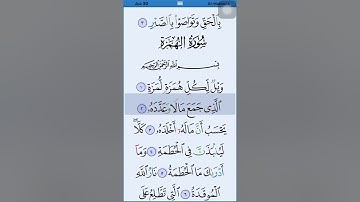 Juz 30
بِالْحَقِّ وَتَوَاصَوْا بِالصَّبْرِ ٣
سُورَةُ الْهُمَزَةِ
بِسْمِ اللَّهِ الرَّحْمَٰنِ الرَّحِيمِ
وَيْلٌ لِّكُلِّ هُمَزَةٍ لُّمَزَةٍ ١
الَّذِي جَمَعَ مَالًا وَعَدَّدَهُ ٢
يَحْسَبُ أَنَّ مَالَهُ أَخْلَدَهُ ٣ كَلَّا
لَيُنبَذَنَّ فِي الْحُطَمَةِ ٤ وَمَا
أَدْرَاكَ مَا الْحُطَمَةُ ٥ نَارُ اللَّهِ
الْمُوقَدَةُ ٦ الَّتِي تَطَّلِعُ عَلَى